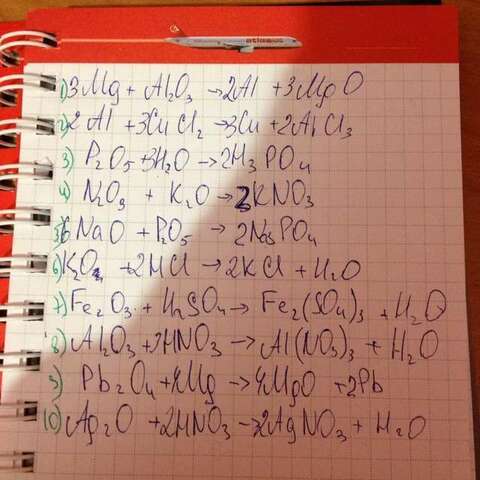 atlasjet
1) 3Mg + Al2O3 → 2Al + 3MgO
2) 2Al + 3CuCl2 → 3Cu + 2AlCl3
3) P2O5 + 3H2O → 2H3PO4
4) N2O5 + K2O → 2KNO3
5) 6NaO + P2O5 → 2Na3PO4
6) K2O + 2HCl → 2KCl + H2O
7) Fe2O3 + H2SO4 → Fe2(SO4)3 + H2O
8) Al2O3 + 3HNO3 → Al(NO3)3 + H2O
9) Pb2O4 + 4Mg → 4MgO + 2Pb
10) Ag2O + 2HNO3 → 2AgNO3 + H2O